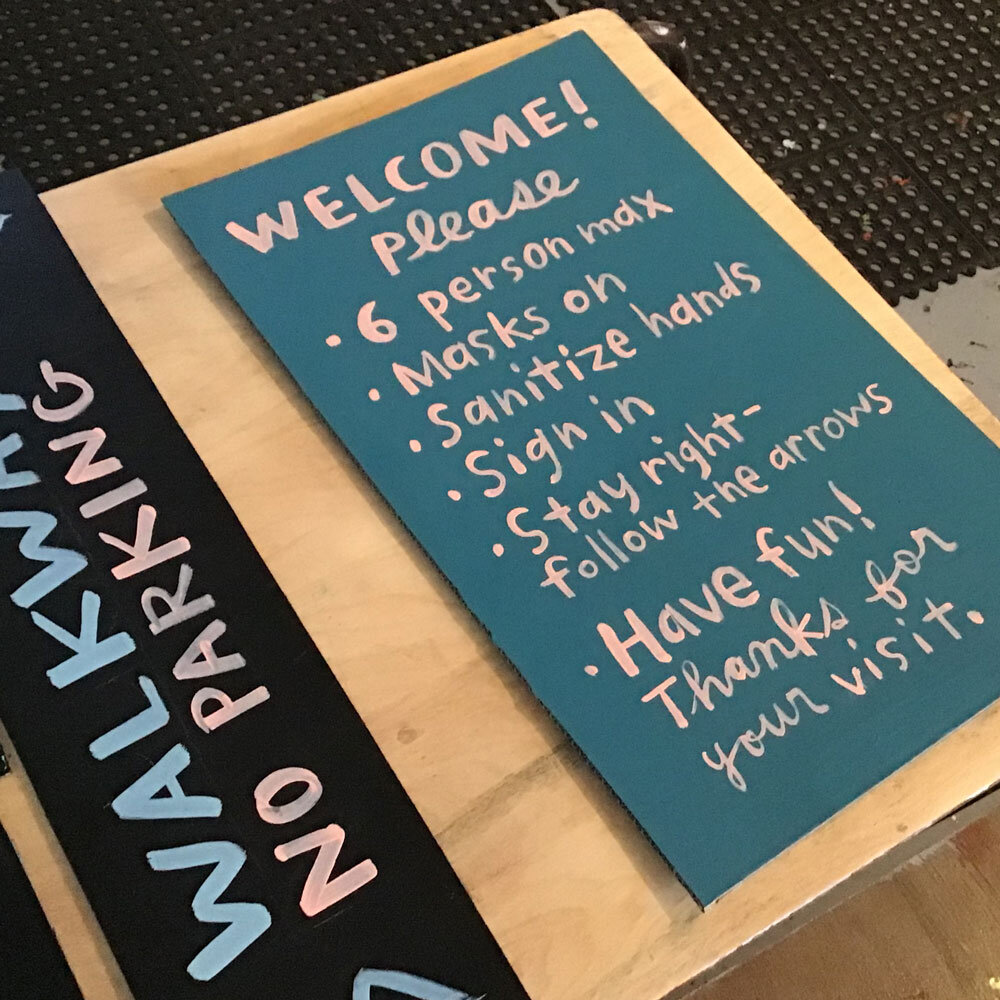 WELCOME!
please
• 6 person max
• Masks on
• Sanitize hands
• Sign in
• Stay right-
follow the arrows
• Have fun!
Thanks for
your visit.
WALKWAY
NO PARKING